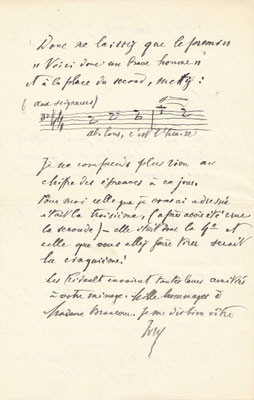 Donc ne laissez que le premier
"Voici donc un brave homme"
et à la place du second, mettez :
(aux seigneurs)
al-lons, c'est l'heu-re
Je ne comprends plus rien au
chiffre des épreuves à ce jour.
Pour moi celle que je vous ai adressée
était la troisième, (après avoir été crue
la seconde) – elle était donc la 4e et
celle que vous allez faire tirer serait
la cinquième!
Les envoient toutes leurs amitiés
à votre ménage. Mille hommages à
Madame Bruneau. Je me dis bien vôtre